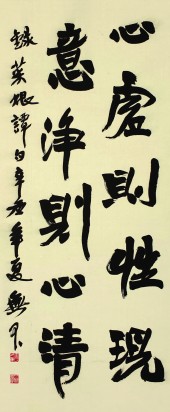 心虚則性現
意淨則心清
錄菜根譚句辛丑年夏興界